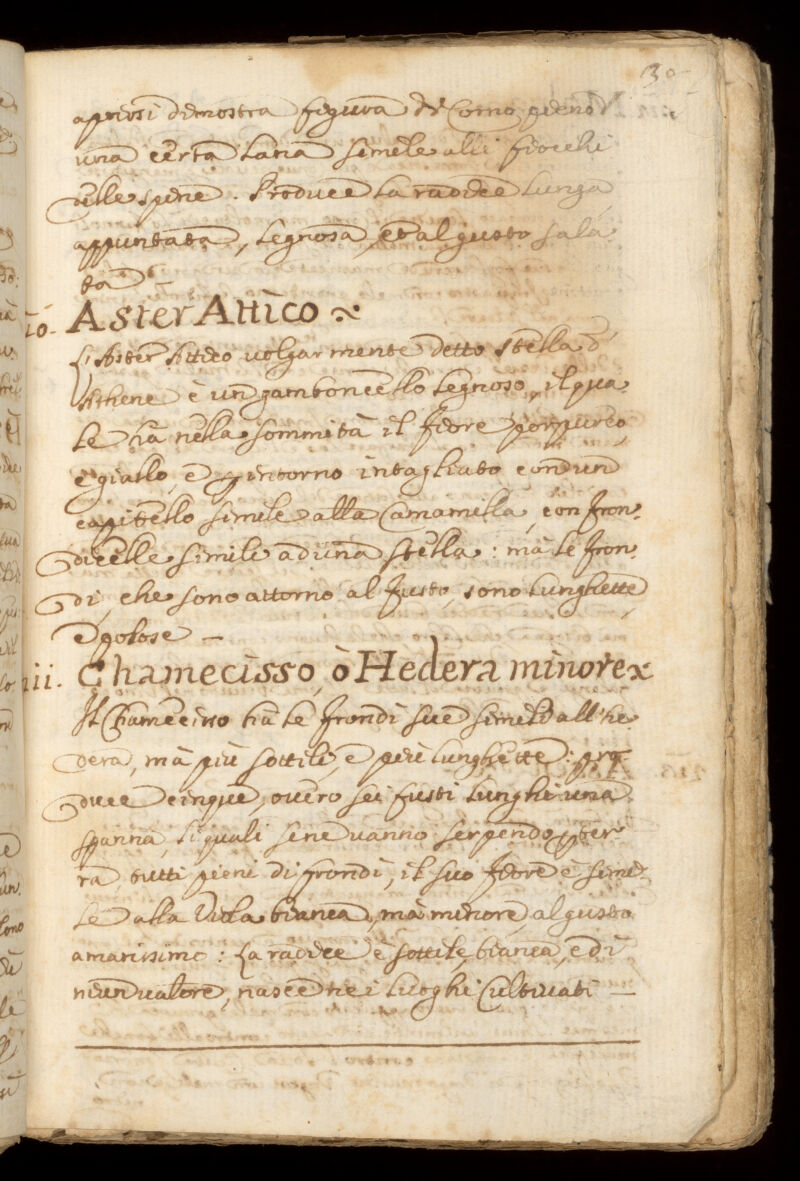 30
aprirsi dimostra figura di Corno pieno
una certa lana simile alli fiocchi
delle spine. Produce la radice lunga
appuntata, legnosa, et al gusto sala
ta
10. Aster Attico
L'Aster Attico volgarmente detto stella d'
Athene è un gamboncello legnoso, il qua
le hà nella sommità il fiore porpureo,
e giallo, e p intorno intagliato con un
capitello simile alla Camamilla, con fron
dicelle simili ad una stella: mà le fron
di, che sono attorno al fusto, sono lunghette
e pelose
11. Chamecisso, ò Hedera minore
Il Chamecisso hà le frondi sue simili all'he
dera, mà più sottili, e più lunghette: pro
duce cinque, overo sei fusti lunghi una
spanna, li quali sene vanno serpendo p ter
ra, tutti pieni di frondi, il suo fiore è simi
le alla Viola bianca, mà minore, al gusto
amarissimo: La radice è sottile, bianca, e di
niun valore, nasce nei luoghi Cultivati